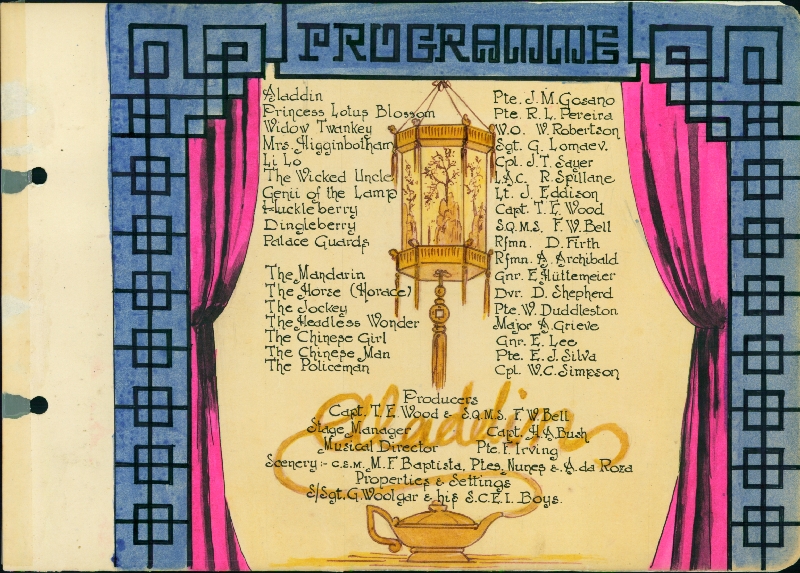 PROGRAMME
Aladdin Pte. J. M. Gosano
Princess Lotus Blossom Pte. R. L. Pereira
Widow Twankey W.O. W. Robertson
Mrs. Higginbotham Sgt. G. Lomaev.
Li Lo Cpl. J. T. Sayer
The Wicked Uncle L.A.C. R. Spillane
Genii of the Lamp Lt. J. Eddison
Huckleberry Capt. T. E. Wood
Dingleberry S.Q.M.S. F. W. Bell
Palace Guards Rfmn. D. Firth
Rfmn. A. Archibald
The Mandarin Gnr. E. Hüttemeier
The Horse (Horace) Dvr. D. Shepherd
The Jockey Pte. W. Duddleston
The Headless Wonder Major A. Grieve
The Chinese Girl Gnr. E. Lee
The Chinese Man Pte. E. J. Silva
The Policeman Cpl. W. C. Simpson
Aladdin
Producers
Capt. T. E. Wood & S.Q.M.S. F. W. Bell
Stage Manager Capt. H. A. Bush
Musical Director Pte. F. Irving
Scenery :- C.S.M. M. F. Baptista, Ptes. Nunes & A. da Roza
Properties & Settings
S/Sgt. G. Woolgar & his S.C.E.I. Boys.